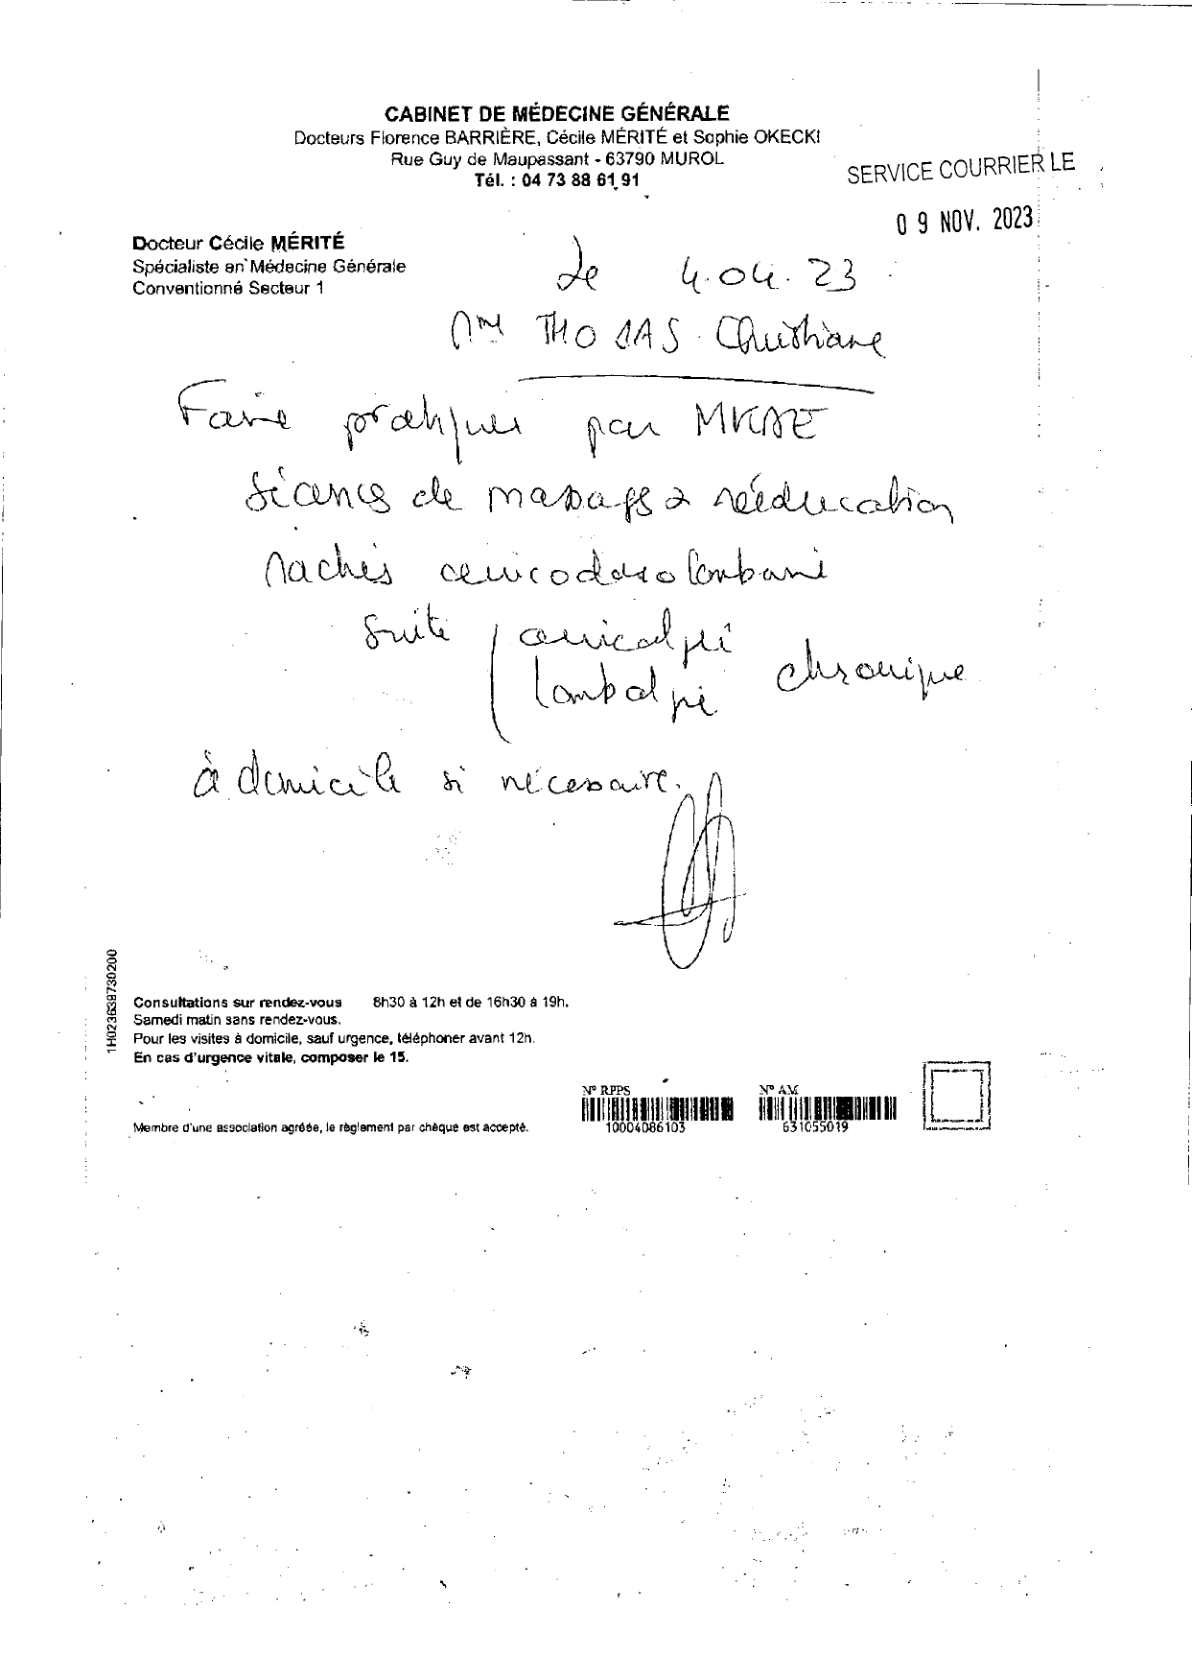 CABINET DE MÉDECINE GÉNÉRALE
Docteurs Florence BARRIÈRE, Cécile MÉRITÉ et Sophie OKECKI
Rue Guy de Maupassant - 63790 MUROL
Tél. : 04 73 88 61 91
SERVICE COURRIER LE
0 9 NOV. 2023
Docteur Cécile MÉRITÉ
Spécialiste en Médecine Générale
Conventionné Secteur 1
Le 4.04.23
Mme THOMAS Christiane
Faire pratiquer par MKDE
séances de massages & rééducation
rachis cervicodorsolombaire
suite cervicalgie
lombalgie chronique
à domicile si nécessaire.
1H023638730200
Consultations sur rendez-vous 8h30 à 12h et de 16h30 à 19h.
Samedi matin sans rendez-vous.
Pour les visites à domicile, sauf urgence, téléphoner avant 12h.
En cas d'urgence vitale, composer le 15.
N° RPPS N° AM
10004086103 631055019
Membre d'une association agréée, le règlement par chèque est accepté.